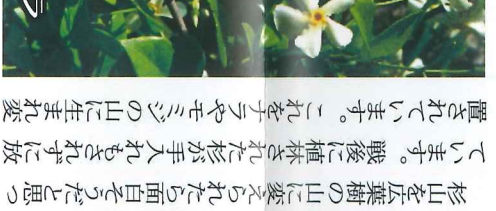 杉山を広葉樹の山に変えられたら面白そうだと思っ
ています。戦後に植林された杉が手入れもされずに放
置されています。これをナラやモミジの山に生まれ変